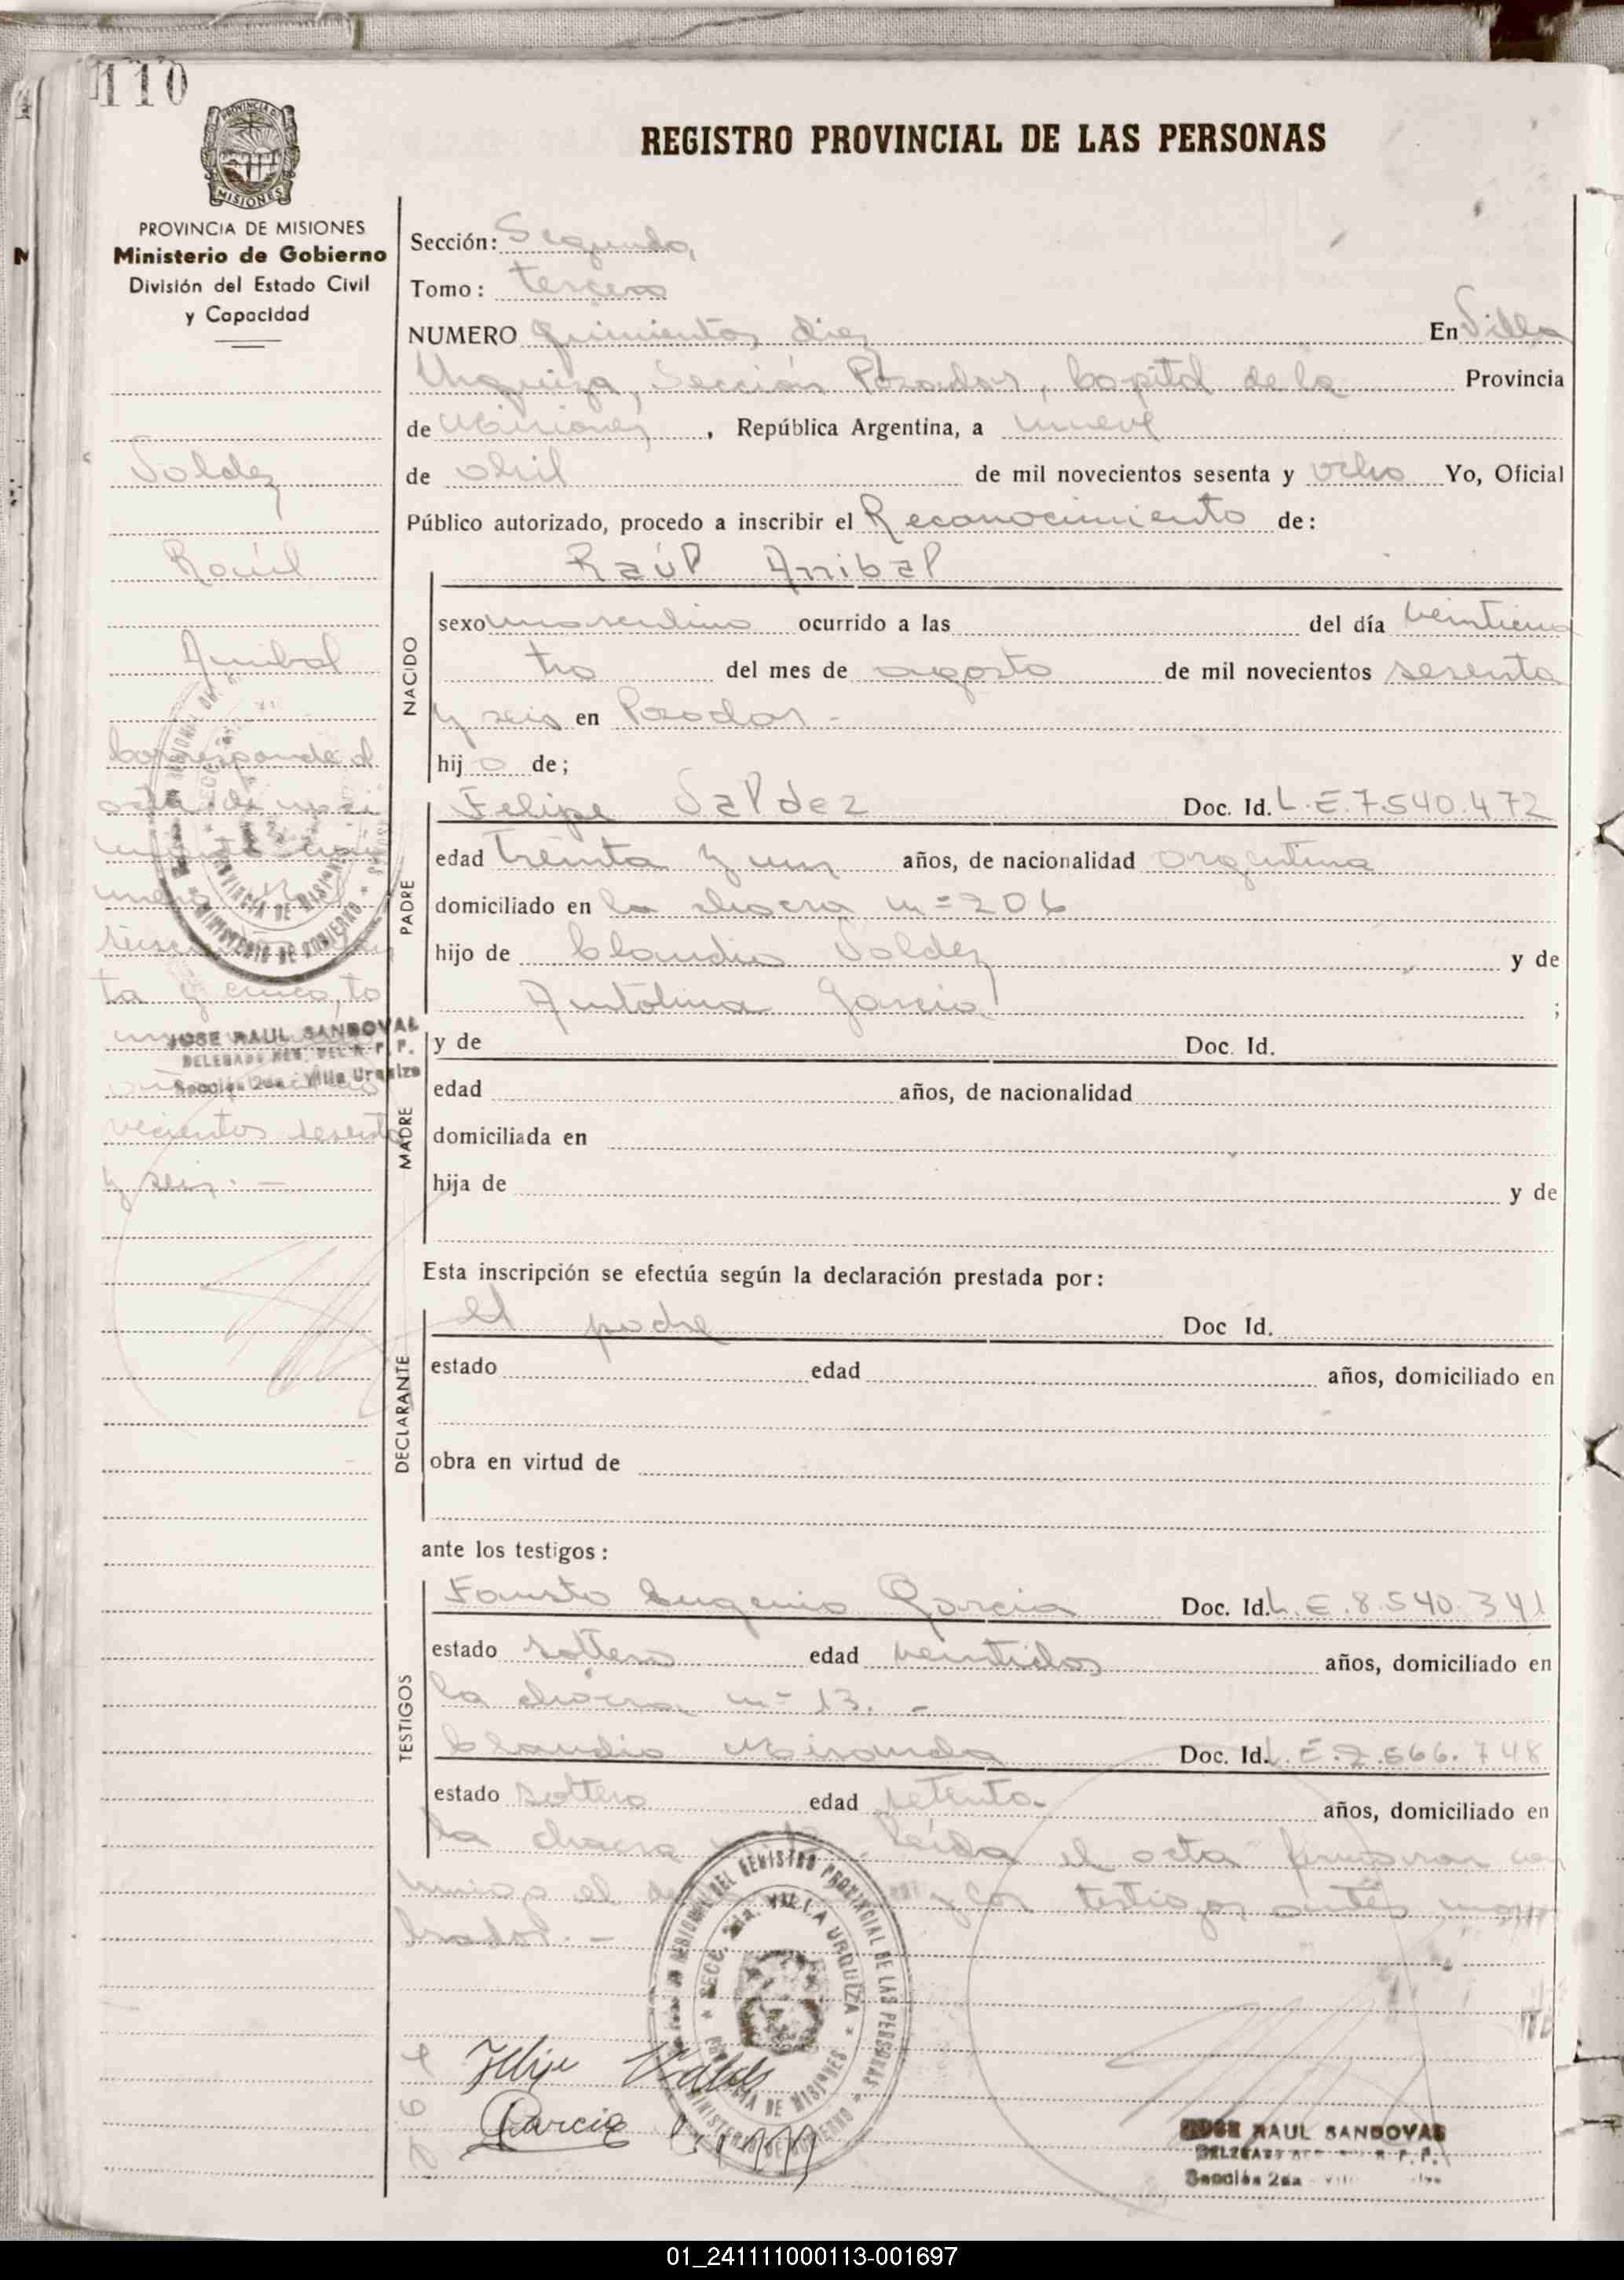 110
PROVINCIA DE
MISIONES
REGISTRO PROVINCIAL DE LAS PERSONAS
PROVINCIA DE MISIONES
Ministerio de Gobierno
División del Estado Civil
y Capacidad
Sección: Segunda
Tomo: tercero
NUMERO quinientos diez En Villa
Urquiza, Sección Posadas, Capital de la Provincia
de Misiones, República Argentina, a nueve
de abril de mil novecientos sesenta y ocho Yo, Oficial
Público autorizado, procedo a inscribir el Reconocimiento de:
Raúl Anibal
NACIDO
sexo masculino ocurrido a las del día veinticua
tro del mes de agosto de mil novecientos sesenta
y seis en Posadas -
hijo de;
PADRE
Felipe Valdez Doc. Id. L.E.7.540.472
edad treinta y un años, de nacionalidad argentina
domiciliado en la chacra nº 206
hijo de Claudio Valdez y de
Antolina Garcia ;
MADRE
y de Doc. Id.
edad años, de nacionalidad
domiciliada en
hija de y de
Esta inscripción se efectúa según la declaración prestada por:
DECLARANTE
el padre Doc Id.
estado edad años, domiciliado en
obra en virtud de
ante los testigos:
TESTIGOS
Fausto Eugenio Garcia Doc. Id. L.E.8.540.341
estado soltero edad veintidos años, domiciliado en
la chacra nº 13. -
Claudio Miranda Doc. Id. L.E.2.566.748
estado soltero edad setenta años, domiciliado en
la chacra Leída el acta firmaron con
migo el y los testigos antes nom
brados. -
Valdez
Raúl
Anibal
Corresponde al
acta de naci
miento
ta y cinco, to
vecientos sesenta
y seis. -
JOSE RAUL SANDOVAL
Sección 2da - Villa Urquiza
SECC. 2da. VILLA URQUIZA
DEL REGISTRO PROVINCIAL DE LAS PERSONAS
PROVINCIA DE MISIONES
MINISTERIO DE GOBIERNO
Felipe Valdez
Garcia
JOSE RAUL SANDOVAL
Sección 2da
01_241111000113-001697